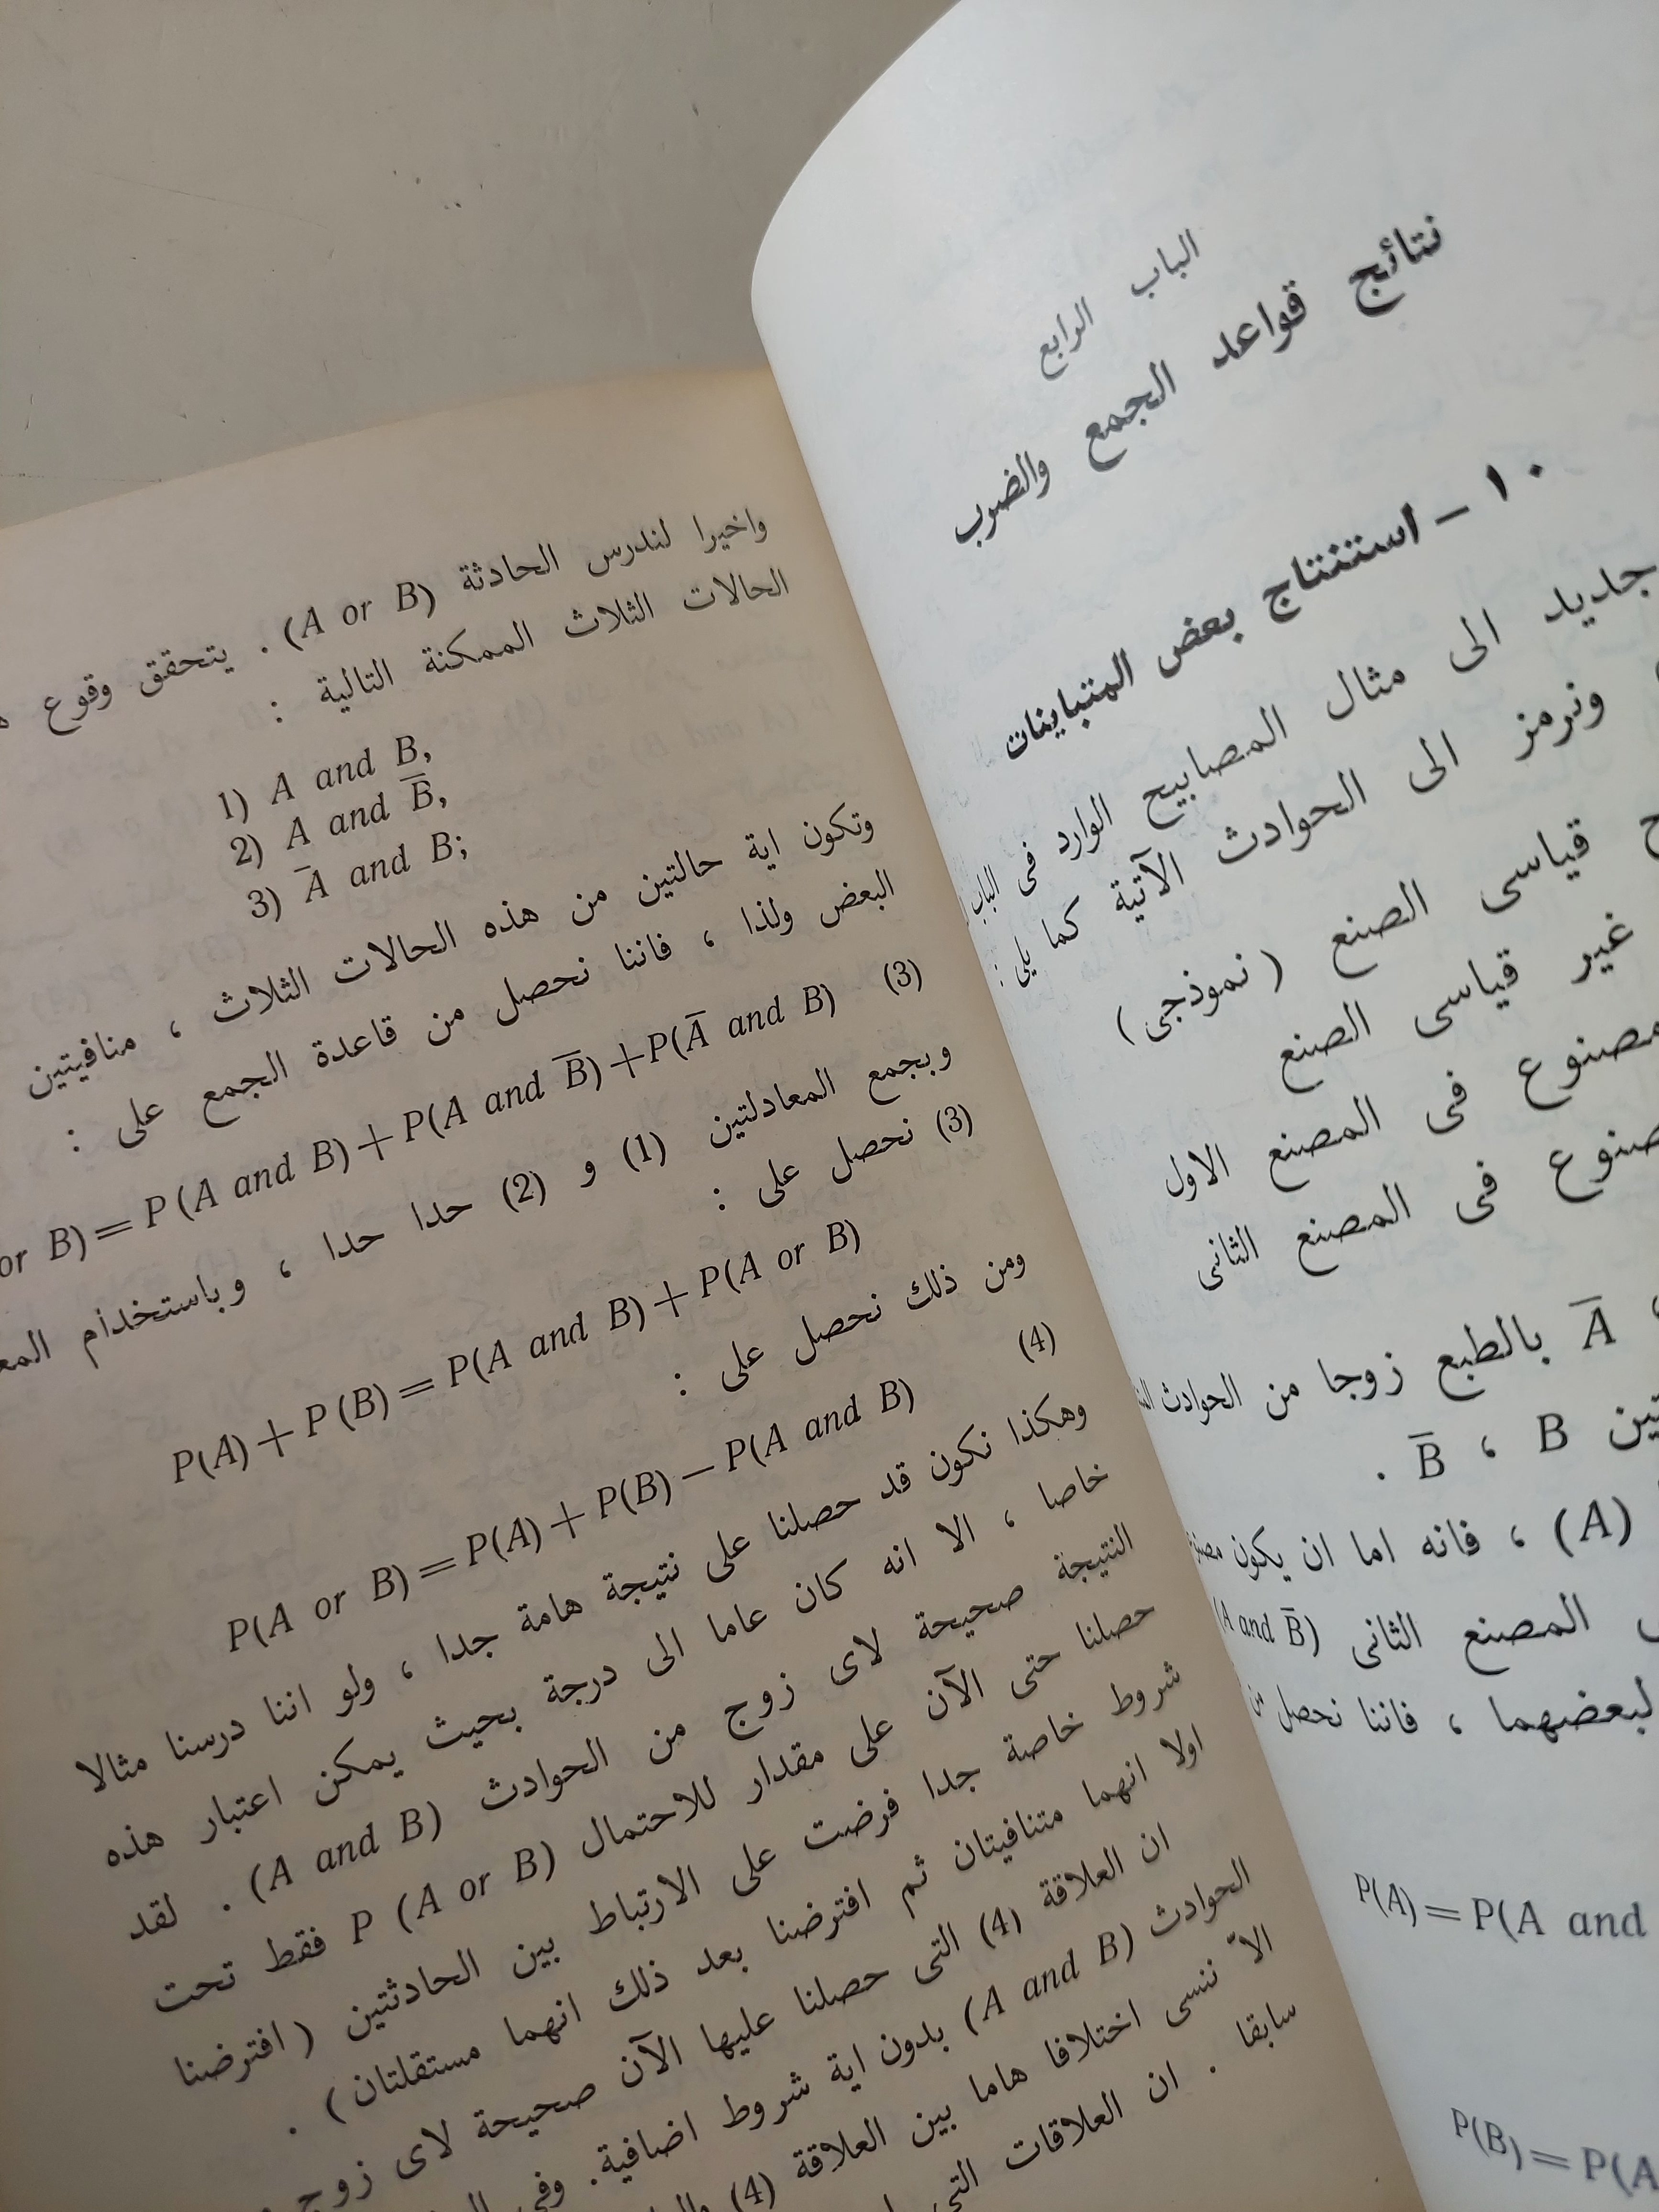 واخيرا لندرس الحادثة (A or B) . يتحقق وقوع
الحالات الثلاث الممكنة التالية :
1) A and B,
2) A and B̅,
3) A̅ and B;
وتكون اية حالتين من هذه الحالات الثلاث ، منافيتين
البعض ولذا ، فاننا نحصل من قاعدة الجمع على :
or B) = P (A and B) + P(A and B̅) + P(A̅ and B) (3)
وبجمع المعادلتين (1) و (2) حدا حدا ، وباستخدام
(3) نحصل على :
P(A) + P (B) = P(A and B) + P(A or B)
ومن ذلك نحصل على :
(4)
P(A or B) = P(A) + P(B) — P(A and B)
وهكذا نكون قد حصلنا على نتيجة هامة جدا ، ولو اننا درسنا مثالا
خاصا ، الا انه كان عاما الى درجة بحيث يمكن اعتبار هذه
النتيجة صحيحة لاى زوج من الحوادث (A and B) . لقد
حصلنا حتى الآن على مقدار للاحتمال P (A or B) فقط تحت
شروط خاصة جدا فرضت على الارتباط بين الحادثتين ( افترضنا
اولا انهما متنافيتان ثم افترضنا بعد ذلك انهما مستقلتان ) .
ان العلاقة (4) التى حصلنا عليها الآن صحيحة لاى زوج
الحوادث (A and B) بدون اية شروط اضافية. وفى
الاّ ننسى اختلافا هاما بين العلاقة (4)
سابقا . ان العلاقات التى
الباب الرابع
نتائج قواعد الجمع والضرب
١٠ – استنتاج بعض المتباينات
جديد الى مثال المصابيح الوارد فى الباب
ونرمز الى الحوادث الآتية كما يلى :
قياسى الصنع ( نموذجى )
غير قياسى الصنع
مصنوع فى المصنع الاول
فى المصنع الثانى
A̅ بالطبع زوجا من الحوادث
B ، B̅ .
(A) ، فانه اما ان يكون
المصنع الثانى (A and B̅)
لبعضهما ، فاننا نحصل من
P(A) = P(A and
P(B) = P(A